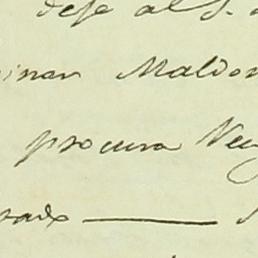 dese al S.
inar Maldon
procura Veu
sado